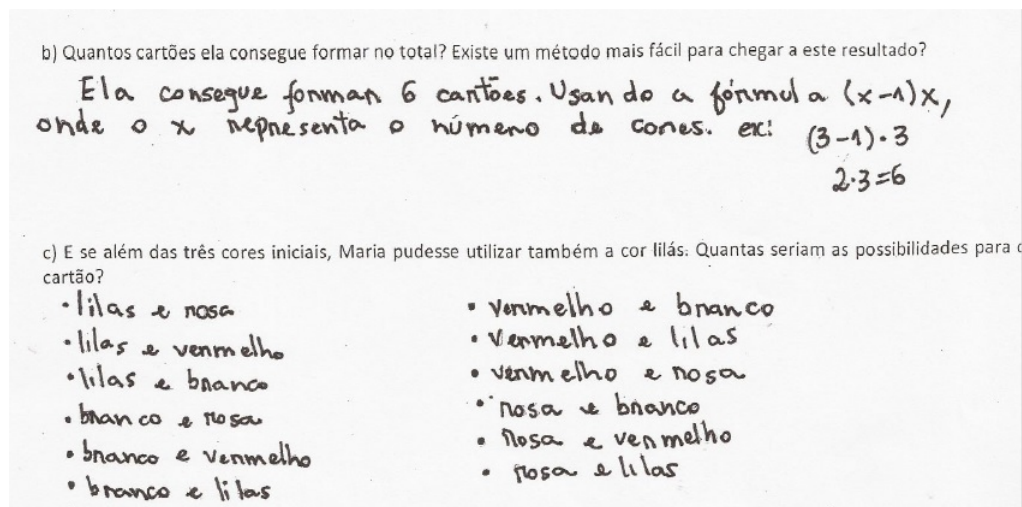 b) Quantos cartões ela consegue formar no total? Existe um método mais fácil para chegar a este resultado?
Ela consegue formar 6 cartões. Usando a fórmula (x-1)x,
onde o x representa o número de cores. ex: (3-1)·3
2·3=6
c) E se além das três cores iniciais, Maria pudesse utilizar também a cor lilás: Quantas seriam as possibilidades para
cartão?
• lilas e rosa
• lilas e vermelho
• lilas e branco
• branco e rosa
• branco e vermelho
• branco e lilas
• vermelho e branco
• vermelho e lilas
• vermelho e rosa
• rosa e branco
• rosa e vermelho
• rosa e lilas